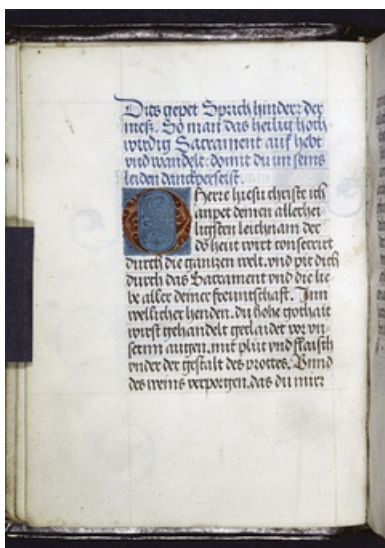 Dits gepet Sprich hinder der
meß. So man das heilig hoch
wirdig Sacrament auf hebt
vnd wandelt. domit du im seins
leiden danckperseist.
O Herre hiesu christe ich
anpet deinen allerhei
ligsten leichnam der
do heut wirt consecrirt
durch die gantzen welt. vnd pit dich
durch das Sacrament vnd die lie
be aller deiner freuntschaft. Inn
wellicher henden. du hohe gothait
wirst gehandelt geclaidet vor vn
sernn augen. mit plut vnd flaisch
vnder der gestalt des prottes. Vnnd
des weins verporgen. das du mier